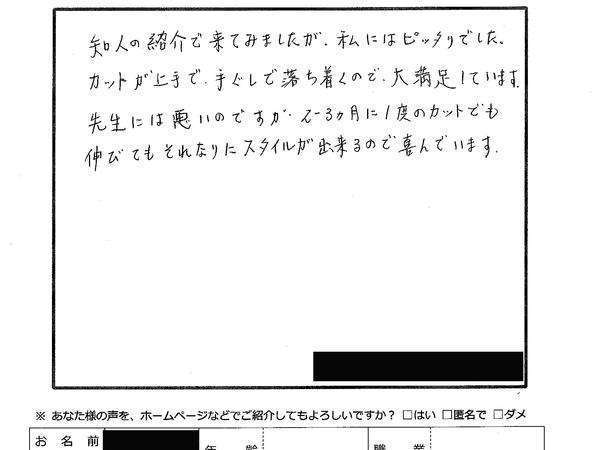 知人の紹介で来てみましたが、私にはピッタリでした。
カットが上手で、手ぐしで落ち着くので、大満足しています。
先生には悪いのですが、2〜3ヶ月に1度のカットでも
伸びてもそれなりにスタイルが出来るので喜んでいます。
※ あなた様の声を、ホームページなどでご紹介してもよろしいですか？ □はい □匿名で □ダメ
お 名 前 年 齢 職 業